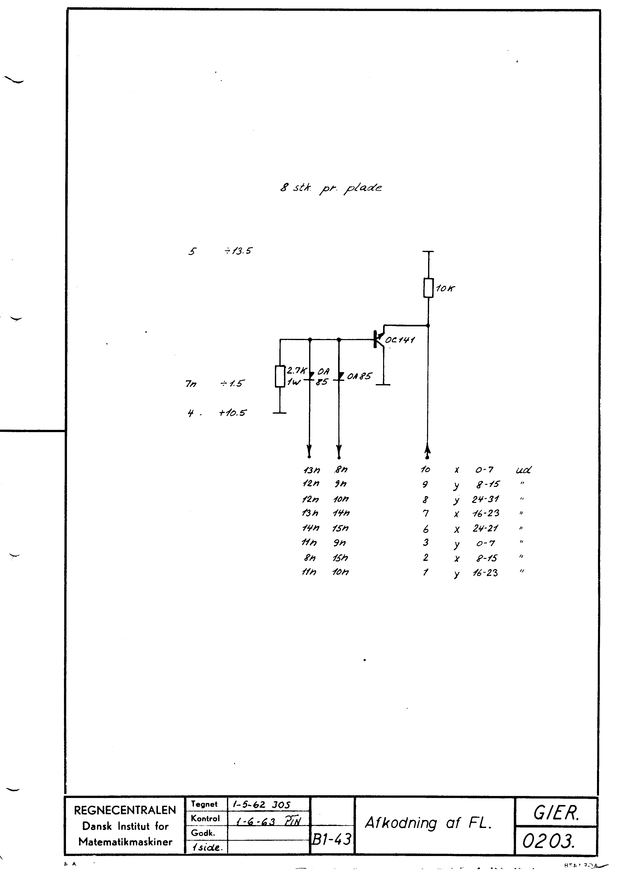 8 stk. pr. plade
5 ÷13.5
10K
OC141
2.7K OA OA85
1W 85
7n ÷1.5
4 . +10.5
13n 8n 10 x 0-7 ud
12n 9n 9 y 8-15 "
12n 10n 8 y 24-31 "
13n 14n 7 x 16-23 "
14n 15n 6 x 24-21 "
11n 9n 3 y 0-7 "
8n 15n 2 x 8-15 "
11n 10n 1 y 16-23 "
REGNECENTRALEN
Dansk Institut for
Matematikmaskiner
Tegnet 1-5-62 JOS
Kontrol 1-6-63 PIN
Godk.
1 side.
B1-43
Afkodning af FL.
GIER.
0203.